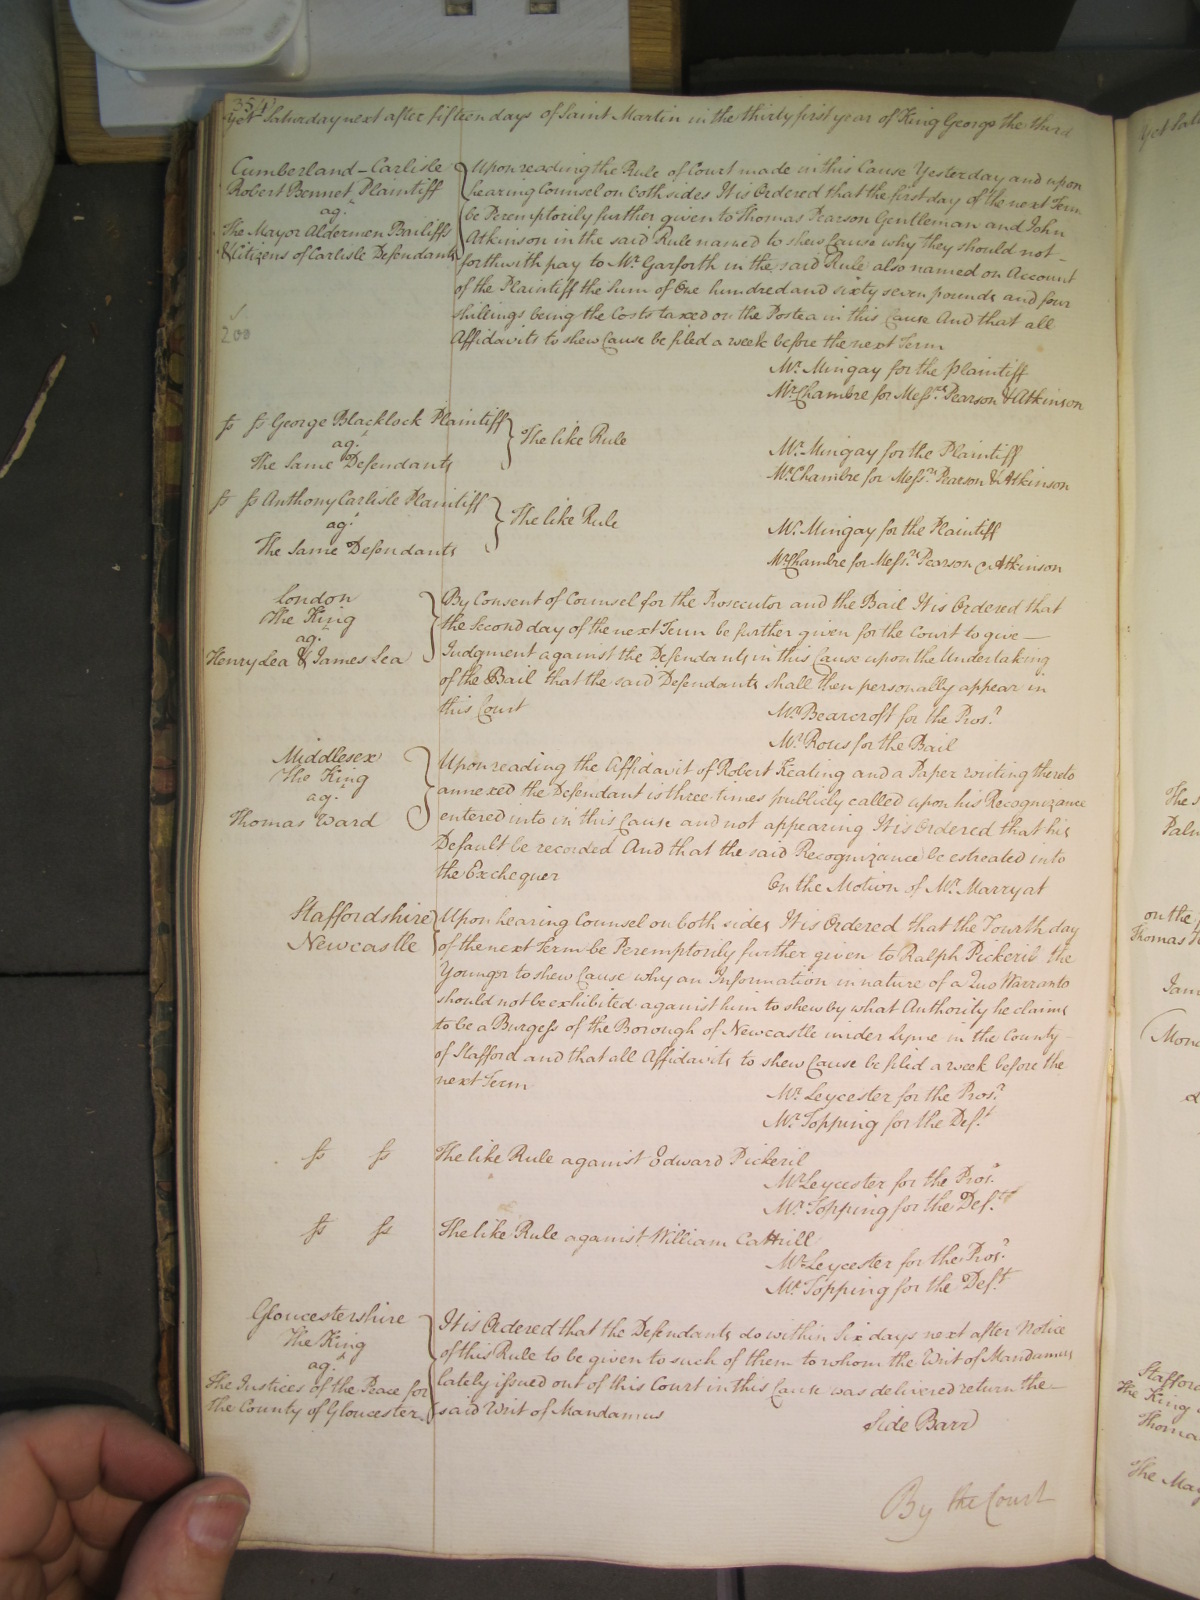 354
Yet Saturday next after fifteen days of Saint Martin in the thirty first year of King George the third
Cumberland - Carlisle
Robert Bennet Plaintiff
agt
The Mayor Aldermen Bailiffs
& Citizens of Carlisle Defendants
200
Upon reading the Rule of Court made in this Cause Yesterday and upon
hearing Counsel on both sides It is Ordered that the first day of the next Term
be Peremptorily further given to Thomas Pearson Gentleman and John
Atkinson in the said Rule named to shew Cause why they should not
forthwith pay to Mr. Garforth in the said Rule also named on Account
of the Plaintiff the Sum of One hundred and sixty seven pounds and four
shillings being the Costs taxed on the Postea in this Cause And that all
Affidavits to shew Cause be filed a week before the next Term
Mr. Mingay for the Plaintiff
Mr. Chambre for Messrs. Pearson & Atkinson
fs fs George Blacklock Plaintiff
agt
The Same Defendants
The like Rule
Mr. Mingay for the Plaintiff
Mr. Chambre for Messrs. Pearson & Atkinson
fs fs Anthony Carlisle Plaintiff
agt
The Same Defendants
The like Rule
Mr. Mingay for the Plaintiff
Mr. Chambre for Messrs. Pearson & Atkinson
London
The King
agt
Henry Lea & James Lea
By Consent of Counsel for the Prosecutor and the Bail It is Ordered that
the Second day of the next Term be further given for the Court to give
Judgment against the Defendants in this Cause upon the Undertaking
of the Bail that the said Defendants shall then personally appear in
this Court
Mr. Bearcroft for the Prosr.
Mr. Rous for the Bail
Middlesex
The King
agt
Thomas Ward
Upon reading the Affidavit of Robert Keating and a Paper writing thereto
annexed the Defendant is three times publicly called upon his Recognizance
entered into in this Cause and not appearing It is Ordered that his
Default be recorded And that the said Recognizance be estreated into
the Exchequer
On the Motion of Mr. Marryat
Staffordshire
Newcastle
Upon hearing Counsel on both sides It is Ordered that the Fourth day
of the next Term be Peremptorily further given to Ralph Pickeril the
Younger to shew Cause why an Information in nature of a Quo Warranto
should not be exhibited against him to shew by what Authority he claims
to be a Burgess of the Borough of Newcastle under Lyme in the County
of Stafford and that all Affidavits to shew Cause be filed a week before the
next Term
Mr. Leycester for the Prosr.
Mr. Topping for the Deft.
fs fs The like Rule against Edward Pickeril
Mr. Leycester for the Prosr.
Mr. Topping for the Deft.
fs fs The like Rule against William Cattrill
Mr. Leycester for the Prosr.
Mr. Topping for the Deft.
Gloucestershire
The King
agt
The Justices of the Peace for
the County of Gloucester
It is Ordered that the Defendants do within Six days next after Notice
of this Rule to be given to such of them to whom the Writ of Mandamus
lately issued out of this Court in this Cause was delivered return the
said Writ of Mandamus
Side Barr
By the Court
Yet
on the
Thomas
Stafford
The King
Thoma
The May